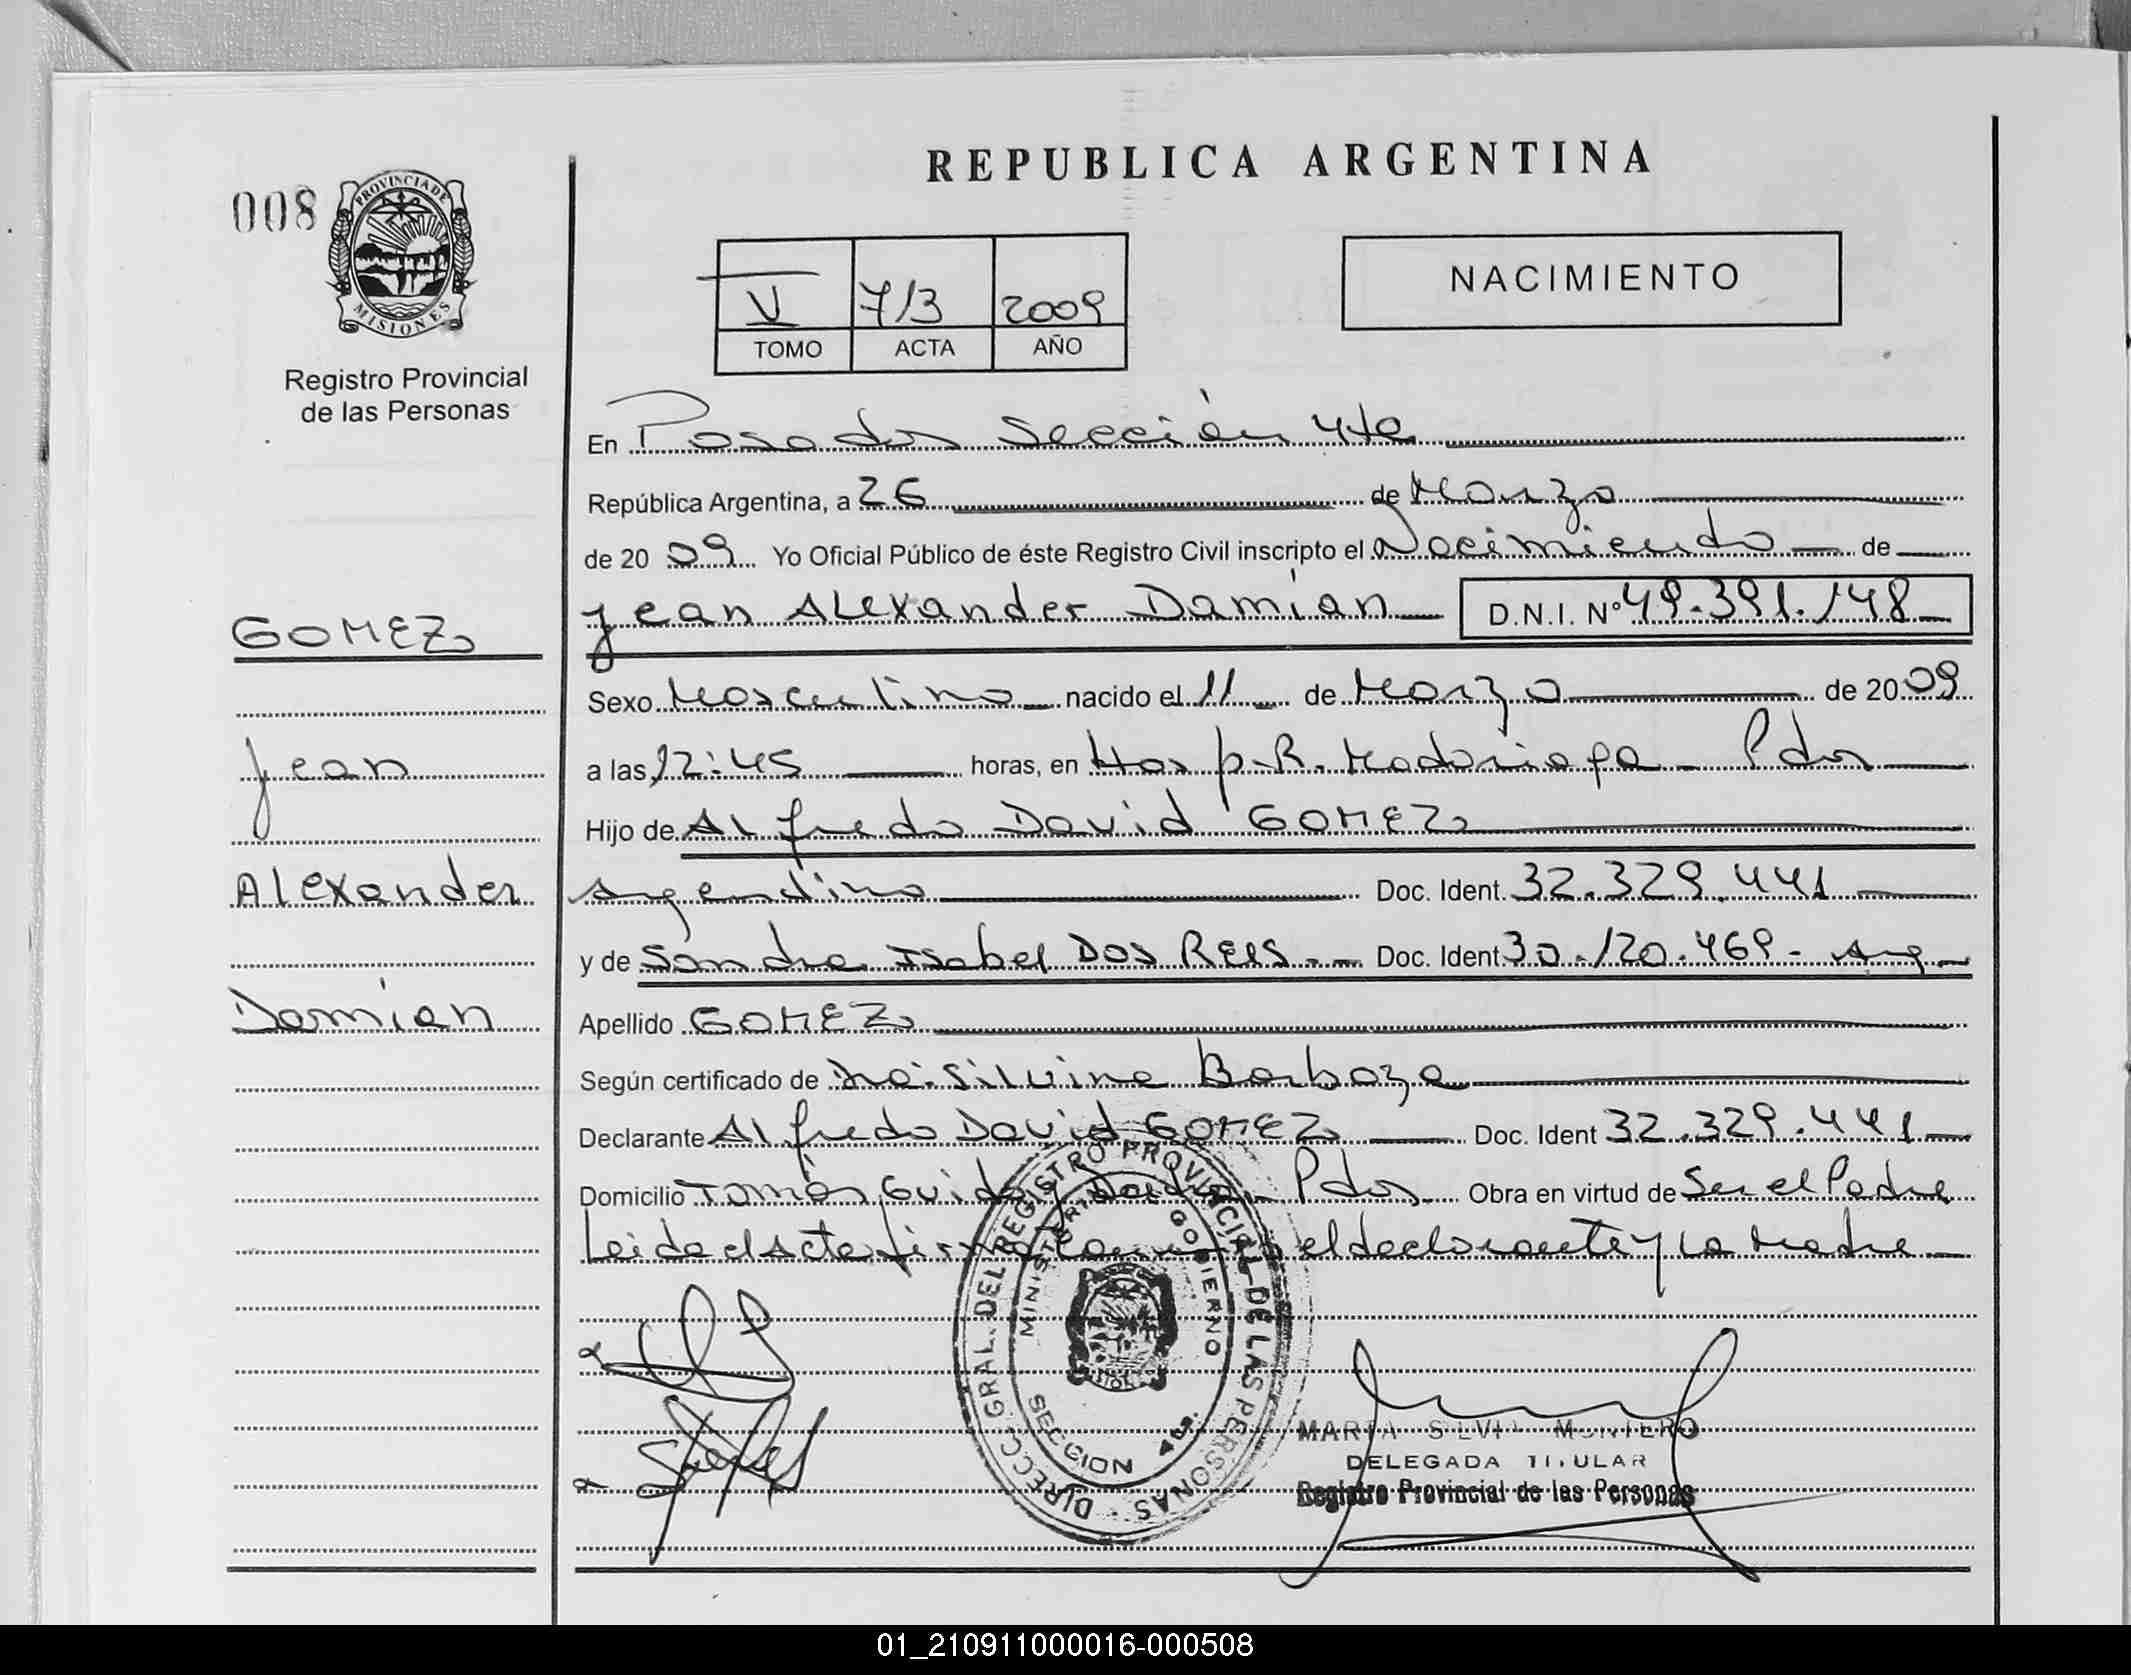 REPUBLICA ARGENTINA
008
PROVINCIA DE
MISIONES
Registro Provincial
de las Personas
NACIMIENTO
V 713 2009
TOMO ACTA AÑO
En Posadas Sección 4ta
República Argentina, a 26 de Marzo
de 2009 Yo Oficial Público de éste Registro Civil inscripto el Nacimiento de
Jean Alexander Damián D.N.I. Nº 49.391.148
GOMEZ
Jean
Alexander
Damián
Sexo Masculino nacido el 11 de Marzo de 2009
a las 12:45 horas, en Hosp. R. Madariaga - Pdas
Hijo de Alfredo David GOMEZ
Argentino Doc. Ident. 32.329.441
y de Sandra Isabel DOS REIS Doc. Ident. 30.120.469 - Arg
Apellido GOMEZ
Según certificado de Dra. Silvina Barboza
Declarante Alfredo David GOMEZ Doc. Ident 32.329.441
Domicilio Tomás Guido y Pdas. Obra en virtud de Ser el Padre
Leida el Acta, firma el declarante y la Madre
DIRECC. GRAL. DEL REGISTRO PROVINCIAL DE LAS PERSONAS
MINISTERIO GOBIERNO
SECCION 4ta.
MARTA SILVIA MONTERO
DELEGADA TITULAR
Registro Provincial de las Personas
01_210911000016-000508